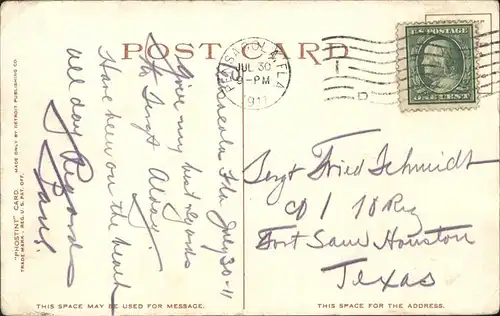 POST CARD
PENSACOLA, FLA.
JUL 30
9-PM
1911
U.S. POSTAGE
ONE CENT
"PHOSTINT" CARD. MADE ONLY BY DETROIT PUBLISHING CO.
TRADE MARK, REG. U.S. PAT. OFF.
Pensacola Fla July 30-11
Give my best regards
to Sergt Alday.
Have been on the beach
all day Regards
Paul
Sergt Fried Schmidt
Co I 18 Reg
Fort Sam Houston
Texas
THIS SPACE MAY BE USED FOR MESSAGE.
THIS SPACE IS FOR THE ADDRESS.